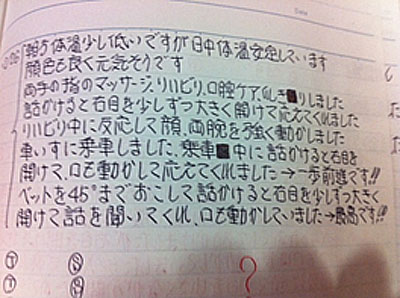 朝方体温少し低いですが日中体温安定しています
顔色も良く元気そうです
両手の指のマッサージ、リハビリ、口腔ケアしっかりしました
話かけると右目を少しずつ大きく開けて応えてくれました
リハビリ中に反応して顔、両腕を強く動かしました
車いすに乗車しました、乗車中に話かけると右目を
開けて、口も動かして応えてくれました→一歩前進です!!
ベットを45°までおこして話かけると右目を少しずつ大きく
開けて話を聞いてくれ、口も動かしていました→最高です!!
?